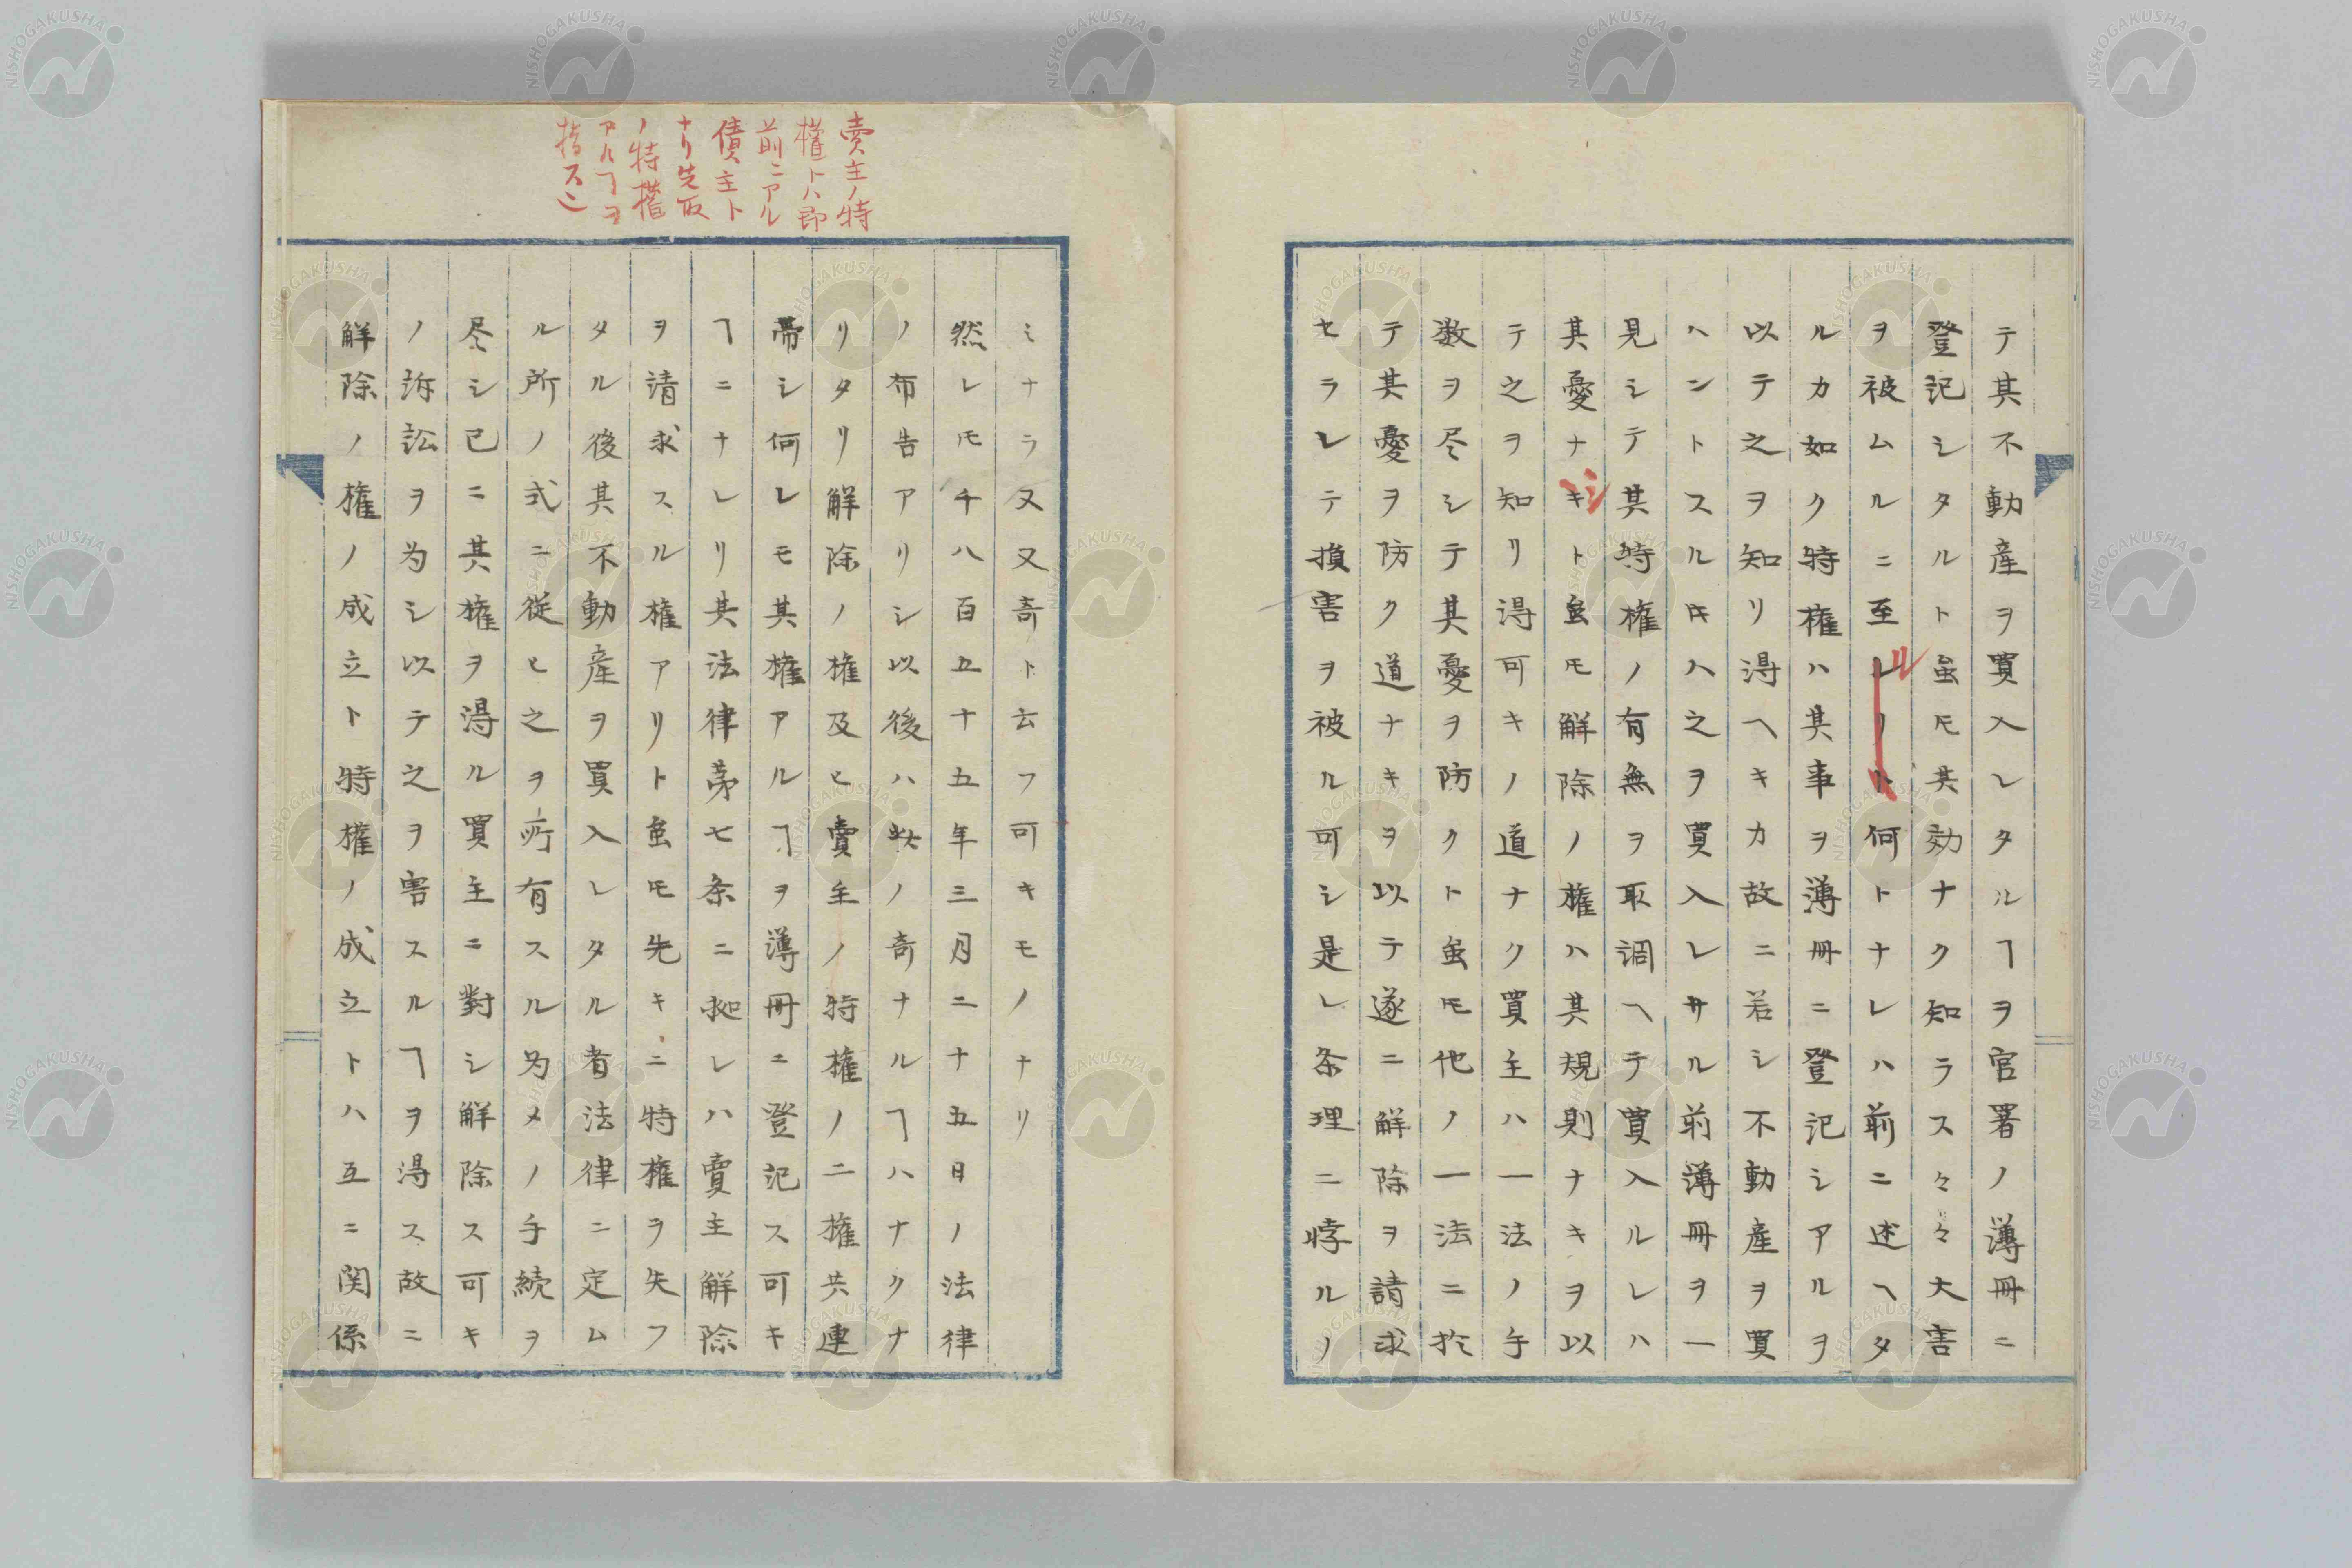 テ其不動産ヲ買入レタルヿヲ官署ノ薄冊ニ
登記シタルト虽モ其効ナク知ラス々々大害
ヲ被ムルニ至レリト何トナレハ前ニ述ヘタ
ル
ルカ如ク特権ハ其事ヲ薄冊ニ登記シアルヲ
以テ之ヲ知リ得ヘキカ故ニ若シ不動産ヲ買
ハントスル𪜈ハ之ヲ買入レサル前薄冊ヲ一
見シテ其特権ノ有無ヲ取調ヘテ買入ルレハ
其憂ナキト虽モ解除ノ権ハ其規則ナキヲ以
シ
テ之ヲ知リ得可キノ道ナク買主ハ一法ノ手
数ヲ尽シテ其憂ヲ防クト虽モ他ノ一法ニ於
テ其憂ヲ防ク道ナキヲ以テ遂ニ解除ヲ請求
セラレテ損害ヲ被ル可シ是レ条理ニ悖ルノ
ミナラ又又奇ト云フ可キモノナリ
然レモ千八百五十五年三月二十五日ノ法律
ノ布告アリシ以後ハ此ノ奇ナルヿハナクナ
リタリ解除ノ権及ヒ賣主ノ特権ノ二権共連
帯シ何レモ其権アルヿヲ薄冊ニ登記ス可キ
ヿニナレリ其法律第七条ニ拠レハ賣主解除
ヲ請求スル権アリト虽モ先キニ特権ヲ失フ
タル後其不動産ヲ買入レタル者法律ニ定ム
ル所ノ式ニ従ヒ之ヲ所有スル為メノ手続ヲ
尽シ已ニ其権ヲ得ル買主ニ對シ解除ス可キ
ノ訴訟ヲ為シ以テ之ヲ害スルヿヲ得ス故ニ
解除ノ権ノ成立ト特権ノ成立トハ互ニ関係
賣主ノ特
権トハ即
前ニアル
債主ト
ナリ先取
ノ特権
アルヿヲ
指ス也
NISHOGAKUSHA